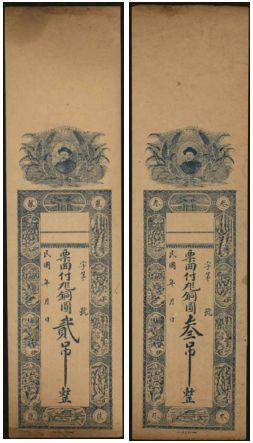 貳 貳
字第 號
票面付銅圓貳吊整
民國 年 月 日
叁 叁
字第 號
票面付銅圓叁吊整
民國 年 月 日